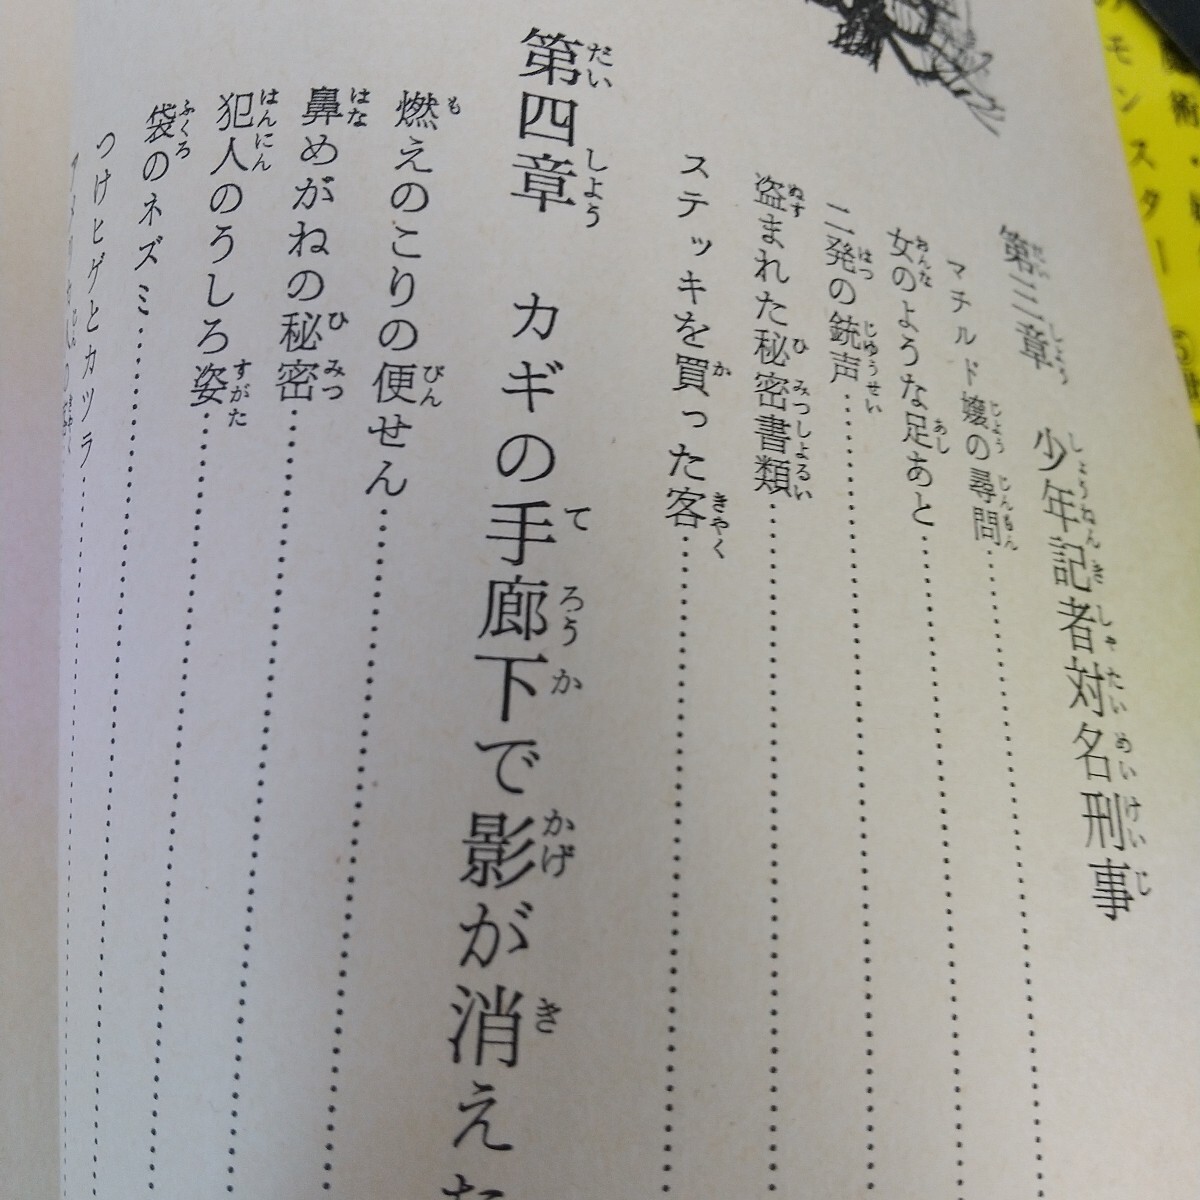 のモンスター
術・
第三章 少年記者対名刑事
マチルド嬢の尋問
女のような足あと
二発の銃声
盗まれた秘密書類
ステッキを買った客
第四章 カギの手廊下で影が消えた
燃えのこりの便せん
鼻めがねの秘密
犯人のうしろ姿
袋のネズミ
つけヒゲとカツラ